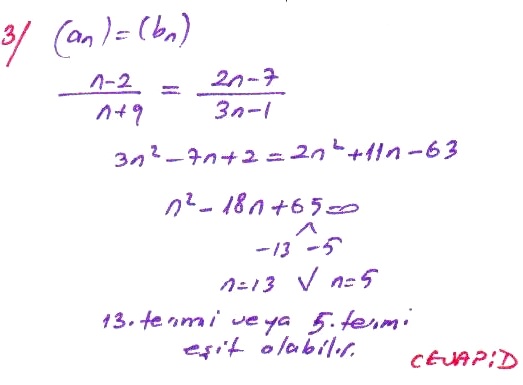 3/ (aₙ)=(bₙ)
n-2/n+9 = 2n-7/3n-1
3n²-7n+2=2n²+11n-63
n²-18n+65=0
-13 -5
n=13 ∨ n=5
13. terimi veya 5. terimi
eşit olabilir.
CEVAP: D